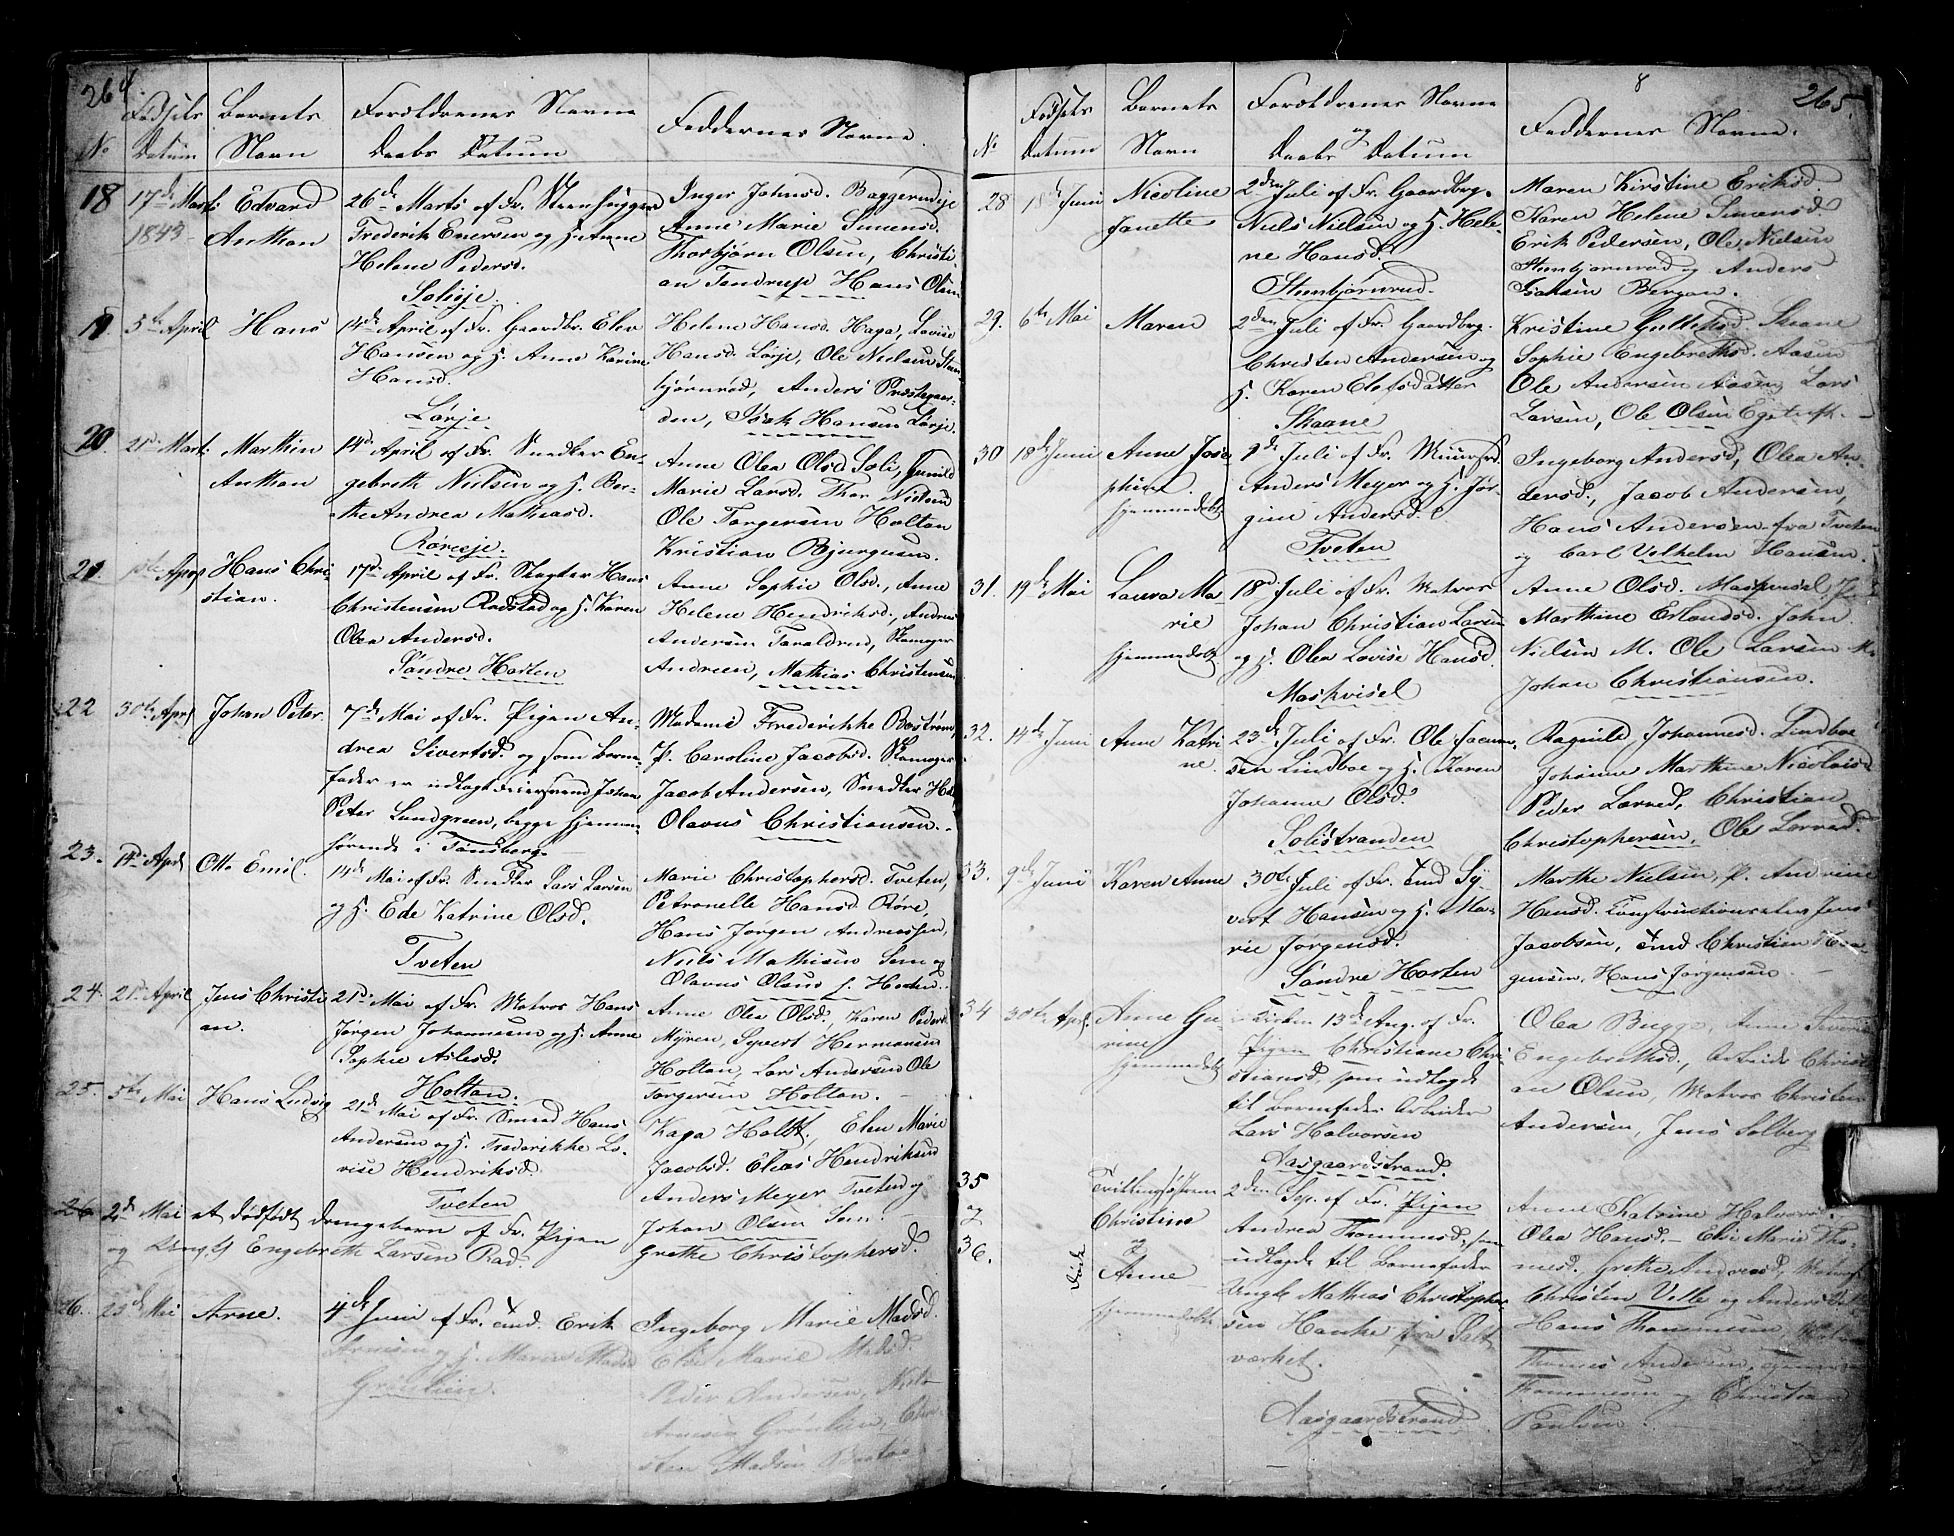 264
No
Fødsels
Datum
Barnets
Navn
Forældrenes Navne
Daabs Datum
Faddernes Navne.
18
17de Marts
1843
Edvard
Anthon
26de Marts af Fr. Steenhugger
Frederik Enersen og H. Anne
Helene Pedersd.
Solieje.
Inger Johnsd. Baggerudeje
Anne Marie Simensd.
Thorbjørn Olsen, Christi
an Tandrup Hans Olsen
19
5te April
Hans
14de April af Fr. Gaardbr. Elev
Hansen og H. Anne Karine
Hansd.
Lørje
Helene Hansd. Haga, Lovise
Hansd. Lørje, Ole Nielsen Steen
bjørnrød, Anders Præstegaar-
den, Isak Hansen Lørje.
20.
21de Marts
Marthin
Anthon
14de April af Fr. Snedker En-
gebreth Nielsen og H. Ber-
the Andrea Mathiasd.
Røreeje.
Anne Olea Olsd. Soli, Gunild
Marie Larsd. Thor Nielsen
Ole Torgersen Holtan
Kristian Bjurgusen.
21.
April
Hans Chri-
stian.
17de April af Fr. Hans
Christensen Rødstad og H. Karen
Olea Andersd.
Søndre Horten
Anne Sophie Olsd., Anne
Helene Hendriksd., Andreas
Andersen Taraldrud, Skomager
Andreen, Mathias Christensen
22
30te April
Johan Peter.
7de Mai af Fr. Pigen An-
drea Sivertsd. og som Barne-
fader er udlagt Johan
Peter Lundgreen, begge hjemme-
hørende i Tønsberg.
Madame Frederikke Bostrøm,
P. Caroline Jacobsd. Skomager
Jacob Andersen, Snedker
Olavus Christiansen.
23.
14de April
Otto Emil.
14de Mai af Fr. Snedker Lars Larsen
og H. Ede Katrine Olsd.
Tveten
Marie Christophersd. Tveten,
Petronelle Hansd. Røre,
Hans Jørgen Andreassen,
Niels Mathisen Sem og
Olavus Olsen f. Horten.
24.
21de April
Jens Christi
an.
21de Mai af Fr. Matros Hans
Jørgen Johannesen og H. Anne
Sophie Aslesd.
Holtan.
Anne Olea Olsd, Karen Pedersd.
Myren, Syvert Hermansen
Holtan, Lars Andersen Ole
Torgersen Holtan.
25.
5te Mai
Hans Ludvig
21de Mai af Fr. Smed Hans
Andersen og H. Frederikke Lo-
vise Hendriksd.
Tveten
Kaga Holst, Elen Marie
Jacobsd. Elias Hendriksen
Anders Meyer Tveten og
Johan Olsen Sem.
26
2de Mai et dødfødt drengebarn af Fr. Pigen
Grethe Christophersd.
og Ungk. Engebreth Larsen Rød.
26.
23de Mai
Arne.
4de Juni af Fr. Tmd. Erik
Arnesen og H. Maren Madsd
Grønlien.
Ingeborg Marie Madsd.
Else Marie Madsd.
Peder Andersen, Niels
Arnesen Grønlien, Chri-
sten Madsen
265.
8
No
Fødsels
Datum
Barnets
Navn
Forældrenes Navne
og
Daabs Datum
Faddernes Navne.
28
18de Juni
Nicoline
Janette
2den Juli af Fr. Gaardbrg.
Niels Nielsen og H. Hele-
ne Hansd.
Steenbjørnrud.
Maren Kirstine Eriksd.
Karen Helene Simensd.
Erik Pedersen, Ole Nielsen
Steenbjørnrød og Anders
Isaksen Bergan.
29.
6te Mai
Maren
2den Juli af Fr. Gaardbrg.
Christen Andersen og
H. Karen Elefsdatter
Skaane
Kristine Guttelsd. Skaane
Sophie Engebrethsd. Aasen
Ole Andersen Aasen, Lars
Larsen, Ole Olsen
30
18de Juni
Anne Jose-
phine.
hjemmedøbt
9de Juli af Fr. Muursvd.
Anders Meyer og H. Jør-
gine Andersd.
Tveten
Ingeborg Andersd, Olea An-
dersd., Jacob Andersen,
Hans Andersen fra Tveten
og Carl Velhelm Hansen.
31.
19de Mai
Laura Ma-
rie
hjemmedøbt
18de Juli af Fr. Matros
Johan Christian Larsen
og H. Olea Lovise Hansd.
Maskvisel
Anne Olsd. Maskvisel,
Marthine Erlandsd. John
Nielsen M. Ole Larsen M.
Johan Christiansen.
32.
14de Juni
Anne Katri
ne.
23de Juli af Fr. Ole Jacom-
sen Lindboe og H. Karen
Johanne Olsd.
Solistranden
Ragnild Johannesd. Lindboe
Johanne Marthine Nicolaisd
Peder Larsen, Christian
Christophersen, Ole Larsen.
33.
9de Juni
Karen Anne
30te Juli af Fr. Tmd Sy-
vert Hansen og H. Ma-
rie Jørgensd.
Søndre Horten
Marthe Nielsen, P. Andrine
Hansd. Constructionselev Jens
Jacobsen, Tmd Christian Haa-
gensen, Hans Jørgensen
34
30te April.
Anne Gu-
rine
hjemmedøbt
i Kirken 13de Aug. af Fr.
Pigen Christiane Chri-
stiansd, som udlagde
til Barnefader Arbeider
Lars Halvorsen
Aasgaardstrand.
Olea Bugge, Anne
Engebrethsd., Arbeide Christi
an Olsen, Matros Christen
Andersen, Jens Solberg
35
og
36.
Døde
Tvillingsøstrene
Christine
og
Anne
hjemmedøbte
2den Sep. af Fr. Pigen
Andrea Thommesd, som
udlagde til Barnefader
Ungk. Mathias Christopher
sen Hanke fra Salt
værket.
Aasgaardstrand.
Anne Katrine Halvorsd.
Olea Hansd. Else Marie Tho-
mesd. Grethe Andersd, Matros
Christen Velle og Anders
Hans Thommesen,
Thomas Andersen,
Thommesen og Christian
Paulsen.